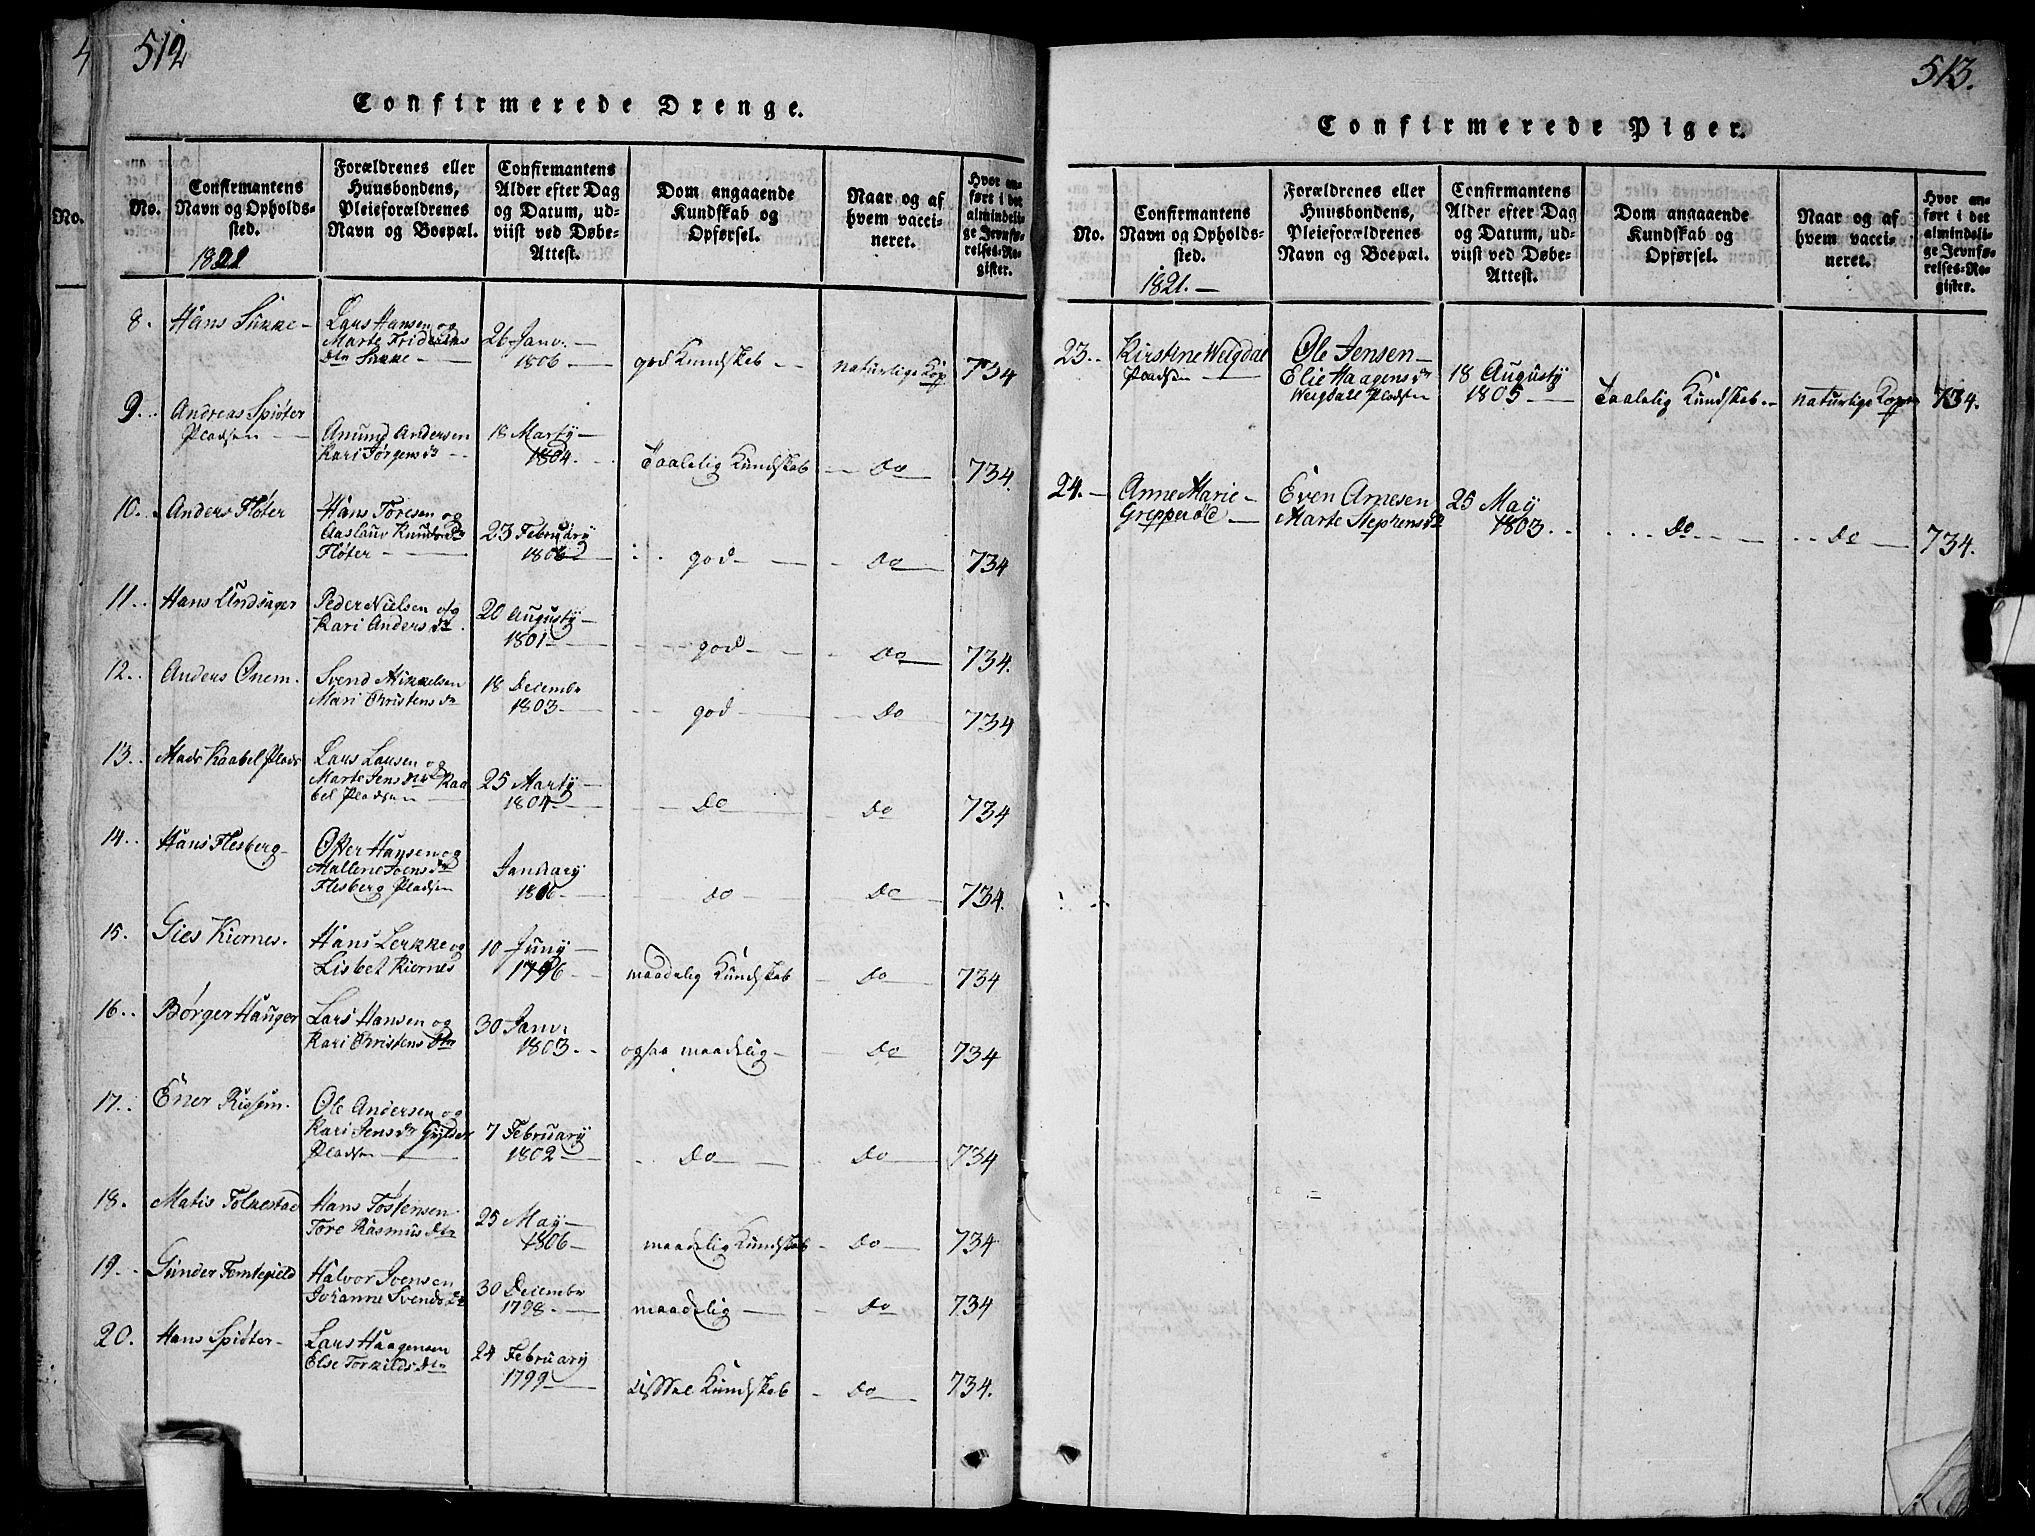 512
Confirmerede Drenge.
No.
Confirmantens
Navn og Opholds-
sted.
1821
Forældrenes eller
Huusbondens,
Pleieforældrenes
Navn og Boepæl.
Confirmantens
Alder efter Dag
og Datum, ud-
viist ved Døbe-
Attest.
Dom angaaende
Kundskab og
Opførsel.
Naar og af
hvem vacci-
neret.
Hvor an-
ført i det
almindeli-
ge Jevnfø-
relses-Re-
gister.
8. Hans Sukke
Lars Hansen og
Marte Fridriks
dtr Sukke
26 Janv.
1806
god Kundskab
naturlige Kop
734
9. Andreas Spiøter
Pladsen
Anund Andersen
Kari Jørgens dr
18 Marty
1804.
Taalelig Kundskab
Do
734.
10. Anders Fløter
Hans Toresen og
Aaslaug Knuds dr
Fløter
23 February
1806
god
Do
734
11. Hans Undsager
Peder Nielsen og
Kari Anders dr.
20 Augusty
1801
god
Do
734.
12. Anders Onem.
Svend Mikkelsen
Mari Christens dr
18 Decembr
1803
god
Do
734
13. Mads Kaabel Plads
Lars Larsen og
Marte Jens dr Kaa
bel Pladsen
25 Marty
1804
Do
Do
734
14. Hans Flesberg
Ofter Hansen og
Mallene Joens dr
Flesberg Pladsen
January
Do
Do
734.
15. Gies Kiornes.
Hans Lerkke og
Lisbet Kiornes
10 Juny
maadelig Kundskab
Do
734
16. Børger Hauger
Lars Hansen og
Kari Christens dtr
30 Janv:
1803
ogsaa maadelig
Do
734
17. Ener Rissem.
Ole Andersen og
Kari Jens dr
Pladsen
7 February
1802
Do
Do
734
18. Matis Folkestad
Hans Tostensen
Tore Rasmus dtr
25 May
1806
maadelig Kundskab
Do
734
19. Gunder Tomtepield
Halvor Joensen
Johanne Svends dr
30 Decembr
1798
maadelig
Do
734
20. Hans Spiøter
Lars Haagensen
Else Torkilds dtr
24 February
1799
Kundskab
Do
734.
513.
Confirmerede Piger.
No.
Confirmantens
Navn og Opholds-
sted.
1821.
Forældrenes eller
Huusbondens,
Pleieforældrenes
Navn og Boepæl.
Confirmantens
Alder efter Dag
og Datum, ud-
viist ved Døbe-
Attest.
Dom angaaende
Kundskab og
Opførsel.
Naar og af
hvem vacci-
neret.
Hvor an-
ført i det
almindeli-
ge Jevnfø-
relses-Re-
gister.
23. Kirstine Weigdal
Pladsen
Ole Jensen
Elie Haagens dr
Weigdal Pladsen
18 Augusty
1805
Taalelig Kundskab.
naturlige Kopper
734.
24. Anne Marie
Gripperød
Even Arnesen
Marte Stephens dr
25 May
1803
Do
Do
734.
No.